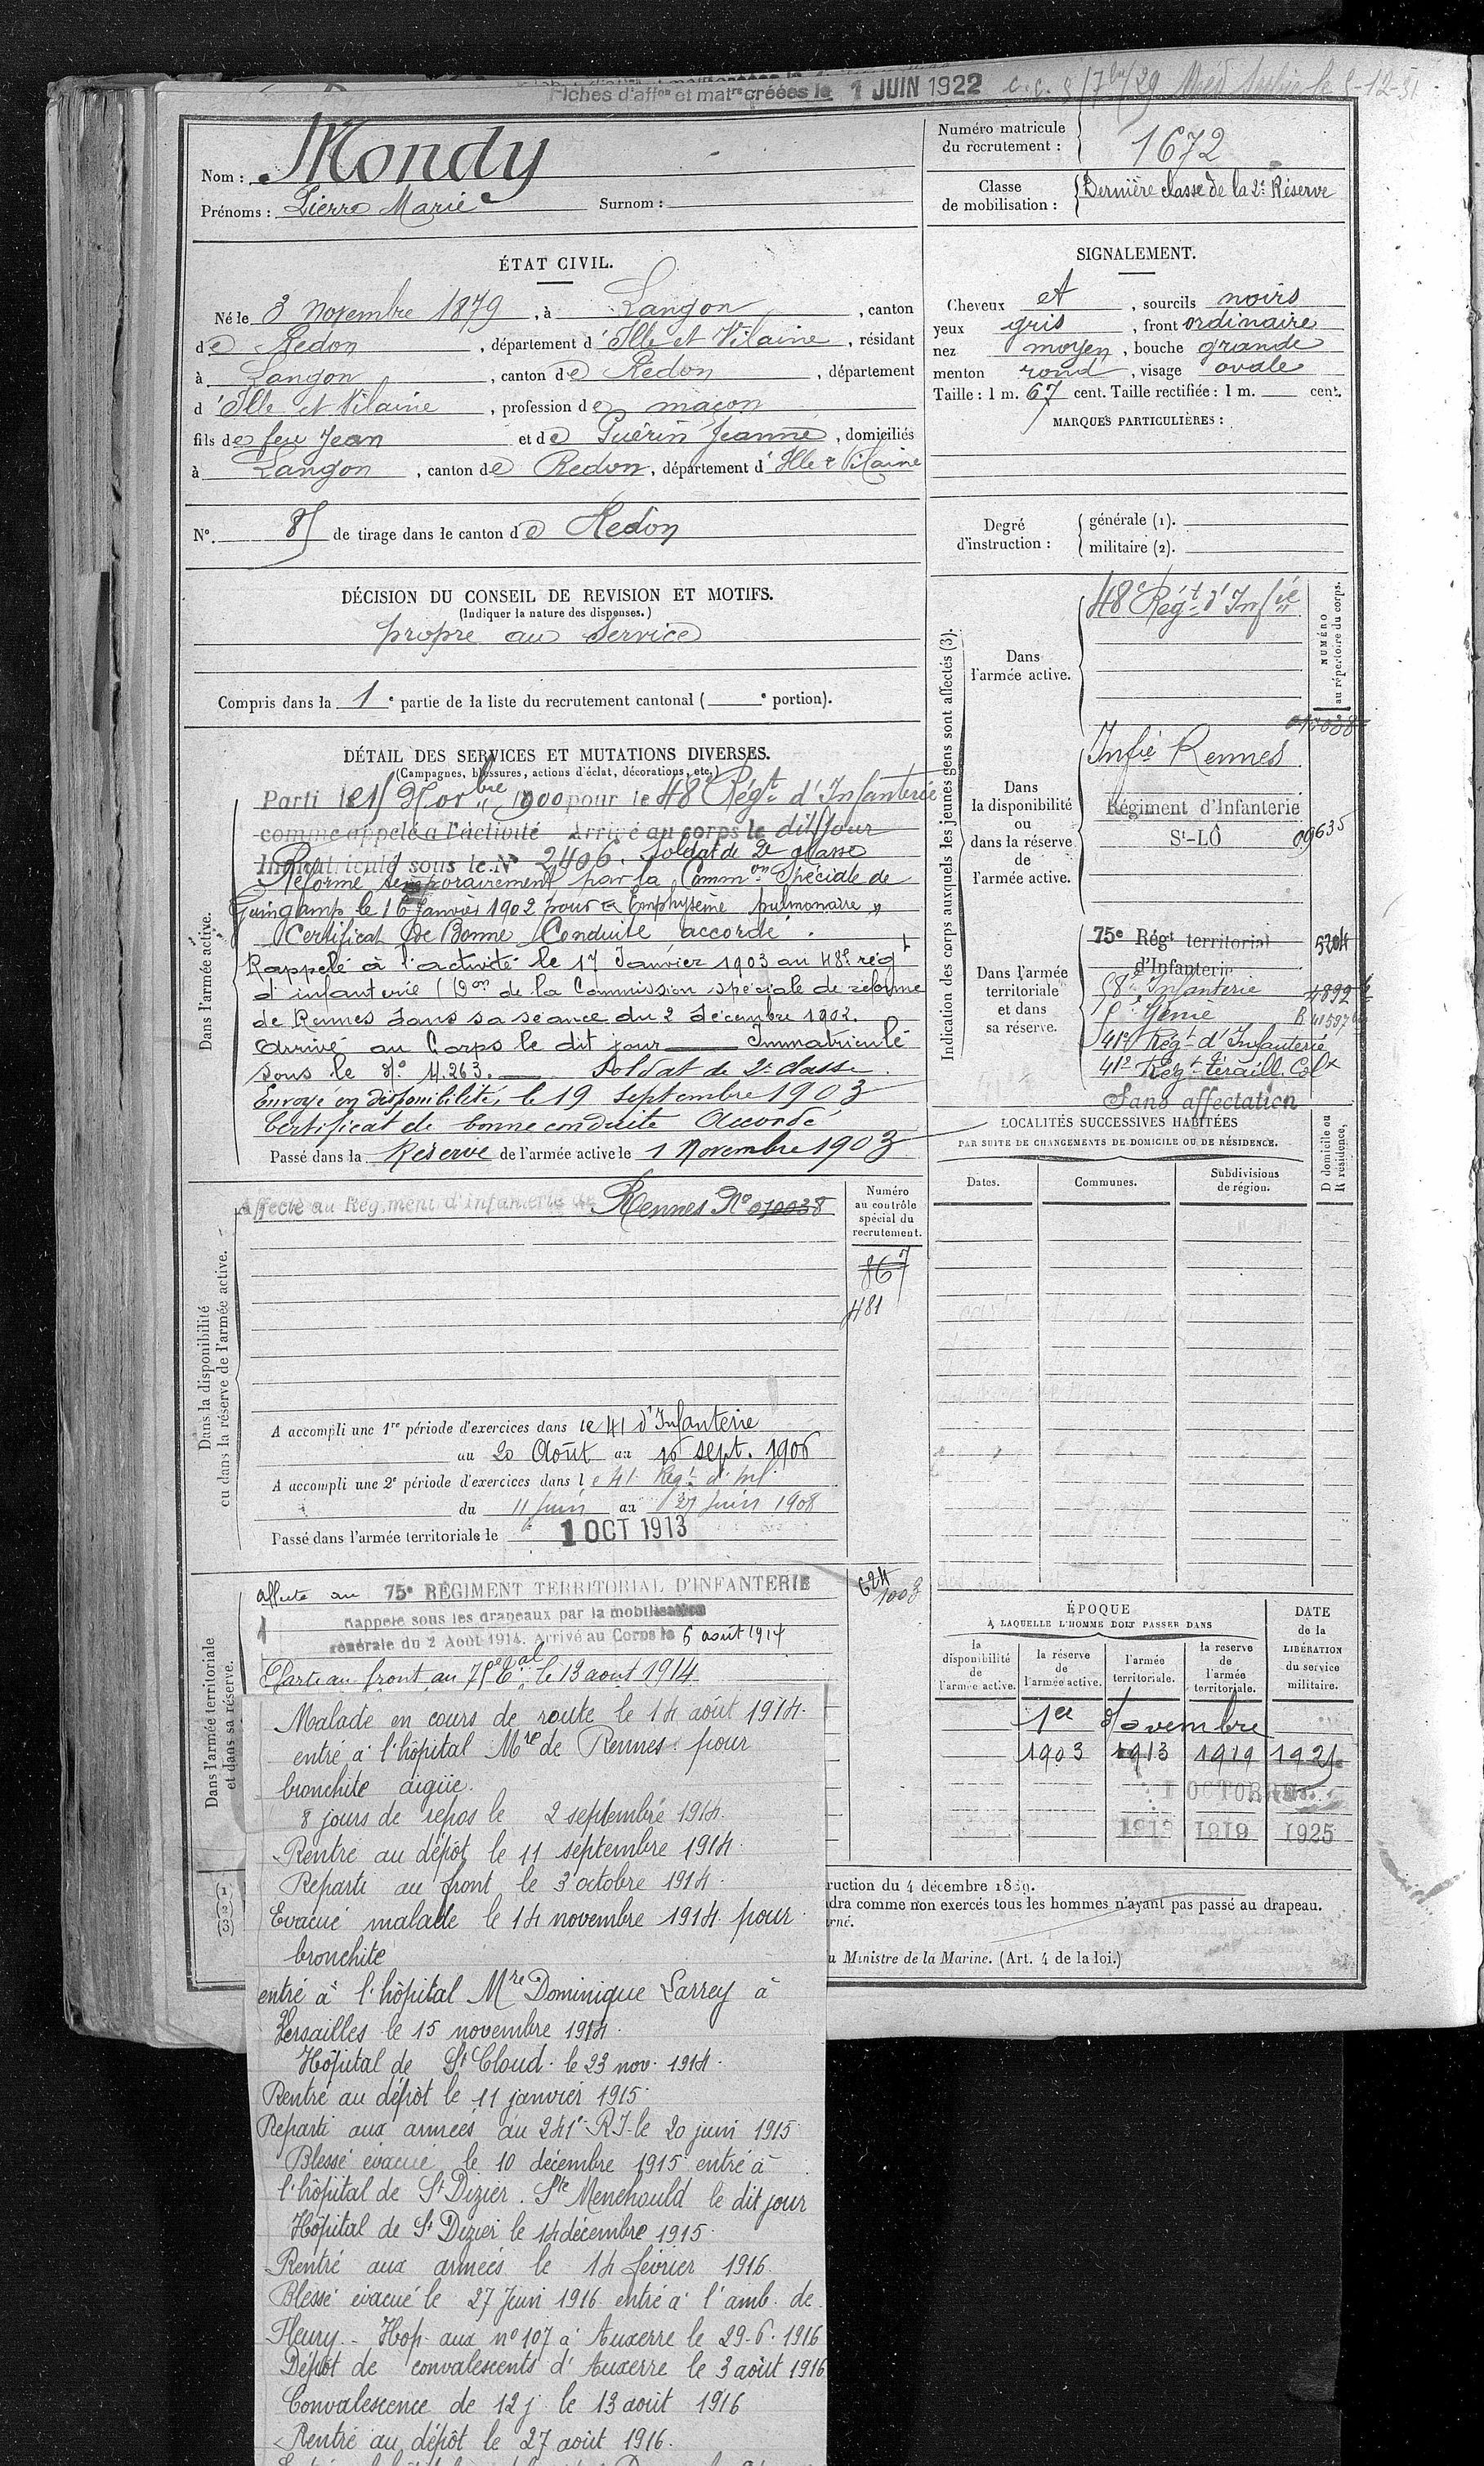 Fiches d'affon et matre créées le 1 JUIN 1922
Nom : Mondy
Prénoms : Pierre Marie Surnom :
Numéro matricule
du recrutement : 1672
Classe
de mobilisation : Dernière classe de la 2e Réserve
ÉTAT CIVIL.
Né le 3 Novembre 1879, à Langon, canton
de Redon, département d'Ille et Vilaine, résidant
à Langon, canton de Redon, département
d'Ille et Vilaine, profession de maçon
fils de feu Jean et de Guérin Jeanne, domiciliés
à Langon, canton de Redon, département d'Ille & Vilaine
N°. 85 de tirage dans le canton de Redon
SIGNALEMENT.
Cheveux et, sourcils noirs
yeux gris, front ordinaire
nez moyen, bouche grande
menton rond, visage ovale
Taille : 1 m. 67 cent. Taille rectifiée : 1 m. cent.
MARQUES PARTICULIÈRES :
Degré
d'instruction :
générale (1).
militaire (2).
DÉCISION DU CONSEIL DE REVISION ET MOTIFS.
(Indiquer la nature des dispenses.)
propre au service
Compris dans la 1e partie de la liste du recrutement cantonal ( e portion).
DÉTAIL DES SERVICES ET MUTATIONS DIVERSES.
(Campagnes, blessures, actions d'éclat, décorations, etc.)
Dans l'armée active.
Parti le 15 Novbre 1900 pour le 48e Régt d'Infanterie
comme appelé à l'activité Arrivé au corps le dit jour
Immatriculé sous le N° 2406. Soldat de 2e classe
Réformé temporairement par la Common Spéciale de
Guingamp le 16 Janvier 1902 pour « Emphysème pulmonaire »
Certificat de Bonne Conduite accordé.
Rappelé à l'activité le 17 Janvier 1903 au 48e régt
d'infanterie (Don de la Commission spéciale de réforme
de Rennes dans sa séance du 2 décembre 1902.
Arrivé au Corps le dit jour Immatriculé
sous le N° 4.263. Soldat de 2e classe.
Envoyé en disponibilité, le 19 septembre 1903
Certificat de bonne conduite Accordé
Passé dans la Réserve de l'armée active le 1 Novembre 1903
Indication des corps auxquels les jeunes gens sont affectés (3).
NUMÉRO
au répertoire du corps.
Dans
l'armée active.
48e Régt d'Infie
Dans
la disponibilité
ou
dans la réserve
de
l'armée active.
010038
Infie Rennes
Régiment d'Infanterie
St-LÔ 09635
Dans l'armée
territoriale
et dans
sa réserve.
75e Régt territorial 5204
d'Infanterie
58e Infanterie
Génie
41e Régt d'Infanterie
412 Régt tiraill. Colx
Sans affectation
LOCALITÉS SUCCESSIVES HABITÉES
PAR SUITE DE CHANGEMENTS DE DOMICILE OU DE RÉSIDENCE.
Dates. Communes. Subdivisions
de région.
D domicile ou
R résidence.
Dans la disponibilité
ou dans la réserve de l'armée active.
Affecté au Régiment d'Infanterie de Rennes N° 010038
Numéro
au contrôle
spécial du
recrutement.
867
481
A accompli une 1re période d'exercices dans le 41 d'Infanterie
au 20 Août au 16 sept. 1906
A accompli une 2e période d'exercices dans le 41 Régt d'inf.
du 11 juin au 27 juin 1908
Passé dans l'armée territoriale le 1 OCT 1913
Dans l'armée territoriale
et dans sa réserve.
affecté au 75e RÉGIMENT TERRITORIAL D'INFANTERIE
624
1003
Rappelé sous les drapeaux par la mobilisation
générale du 2 Août 1914. Arrivé au Corps le 6 août 1914
Parti au front au 75e tal le 13 aout 1914
Malade en cours de route le 14 août 1914.
entré à l'hôpital Mre de Rennes pour
bronchite aigüe.
8 jours de repos le 2 septembre 1914.
Rentré au dépôt le 11 septembre 1914.
Reparti au front le 3 octobre 1914.
Evacué malade le 14 novembre 1914 pour
bronchite
entré à l'hôpital Mre Dominique Larrey à
Versailles le 15 novembre 1914.
Hôpital de St Cloud. le 23 nov. 1914.
Rentré au dépôt le 11 janvier 1915.
Reparti aux armées au 241e R.I. le 20 juin 1915
Blessé évacué le 10 décembre 1915 entré à
l'hôpital de St Dizier. Ste Menehould le dit jour
Hôpital de St Dizier le 14 décembre 1915.
Rentré aux armées le 14 février 1916.
Blessé évacué le 27 Juin 1916 entré à l'amb. de
Fleury - Hop. aux n° 107 à Auxerre le 29-6-1916
Dépôt de convalescents d'Auxerre le 3 août 1916
Convalescence de 12 j. le 13 août 1916
Rentré au dépôt le 27 août 1916.
ÉPOQUE
À LAQUELLE L'HOMME DOIT PASSER DANS
la
disponibilité
de
l'armée active.
la réserve
de
l'armée active.
l'armée
territoriale.
la réserve
de
l'armée
territoriale.
DATE
de la
LIBÉRATION
du service
militaire.
1er Novembre
1903 1913 1919 1925
1 OCTOBRE
1913 1919 1925
ruction du 4 décembre 1889.
dra comme non exercés tous les hommes n'ayant pas passé au drapeau.
rné.
u Ministre de la Marine. (Art. 4 de la loi.)